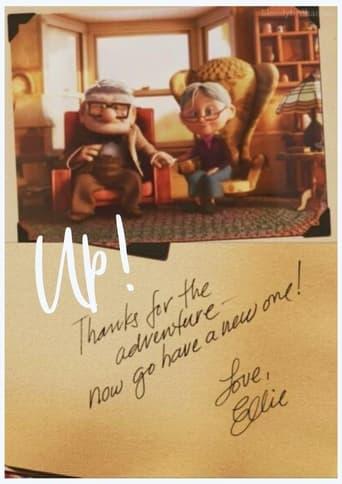 Up!
Thanks for the
adventure -
now go have a new one!
Love,
Ellie